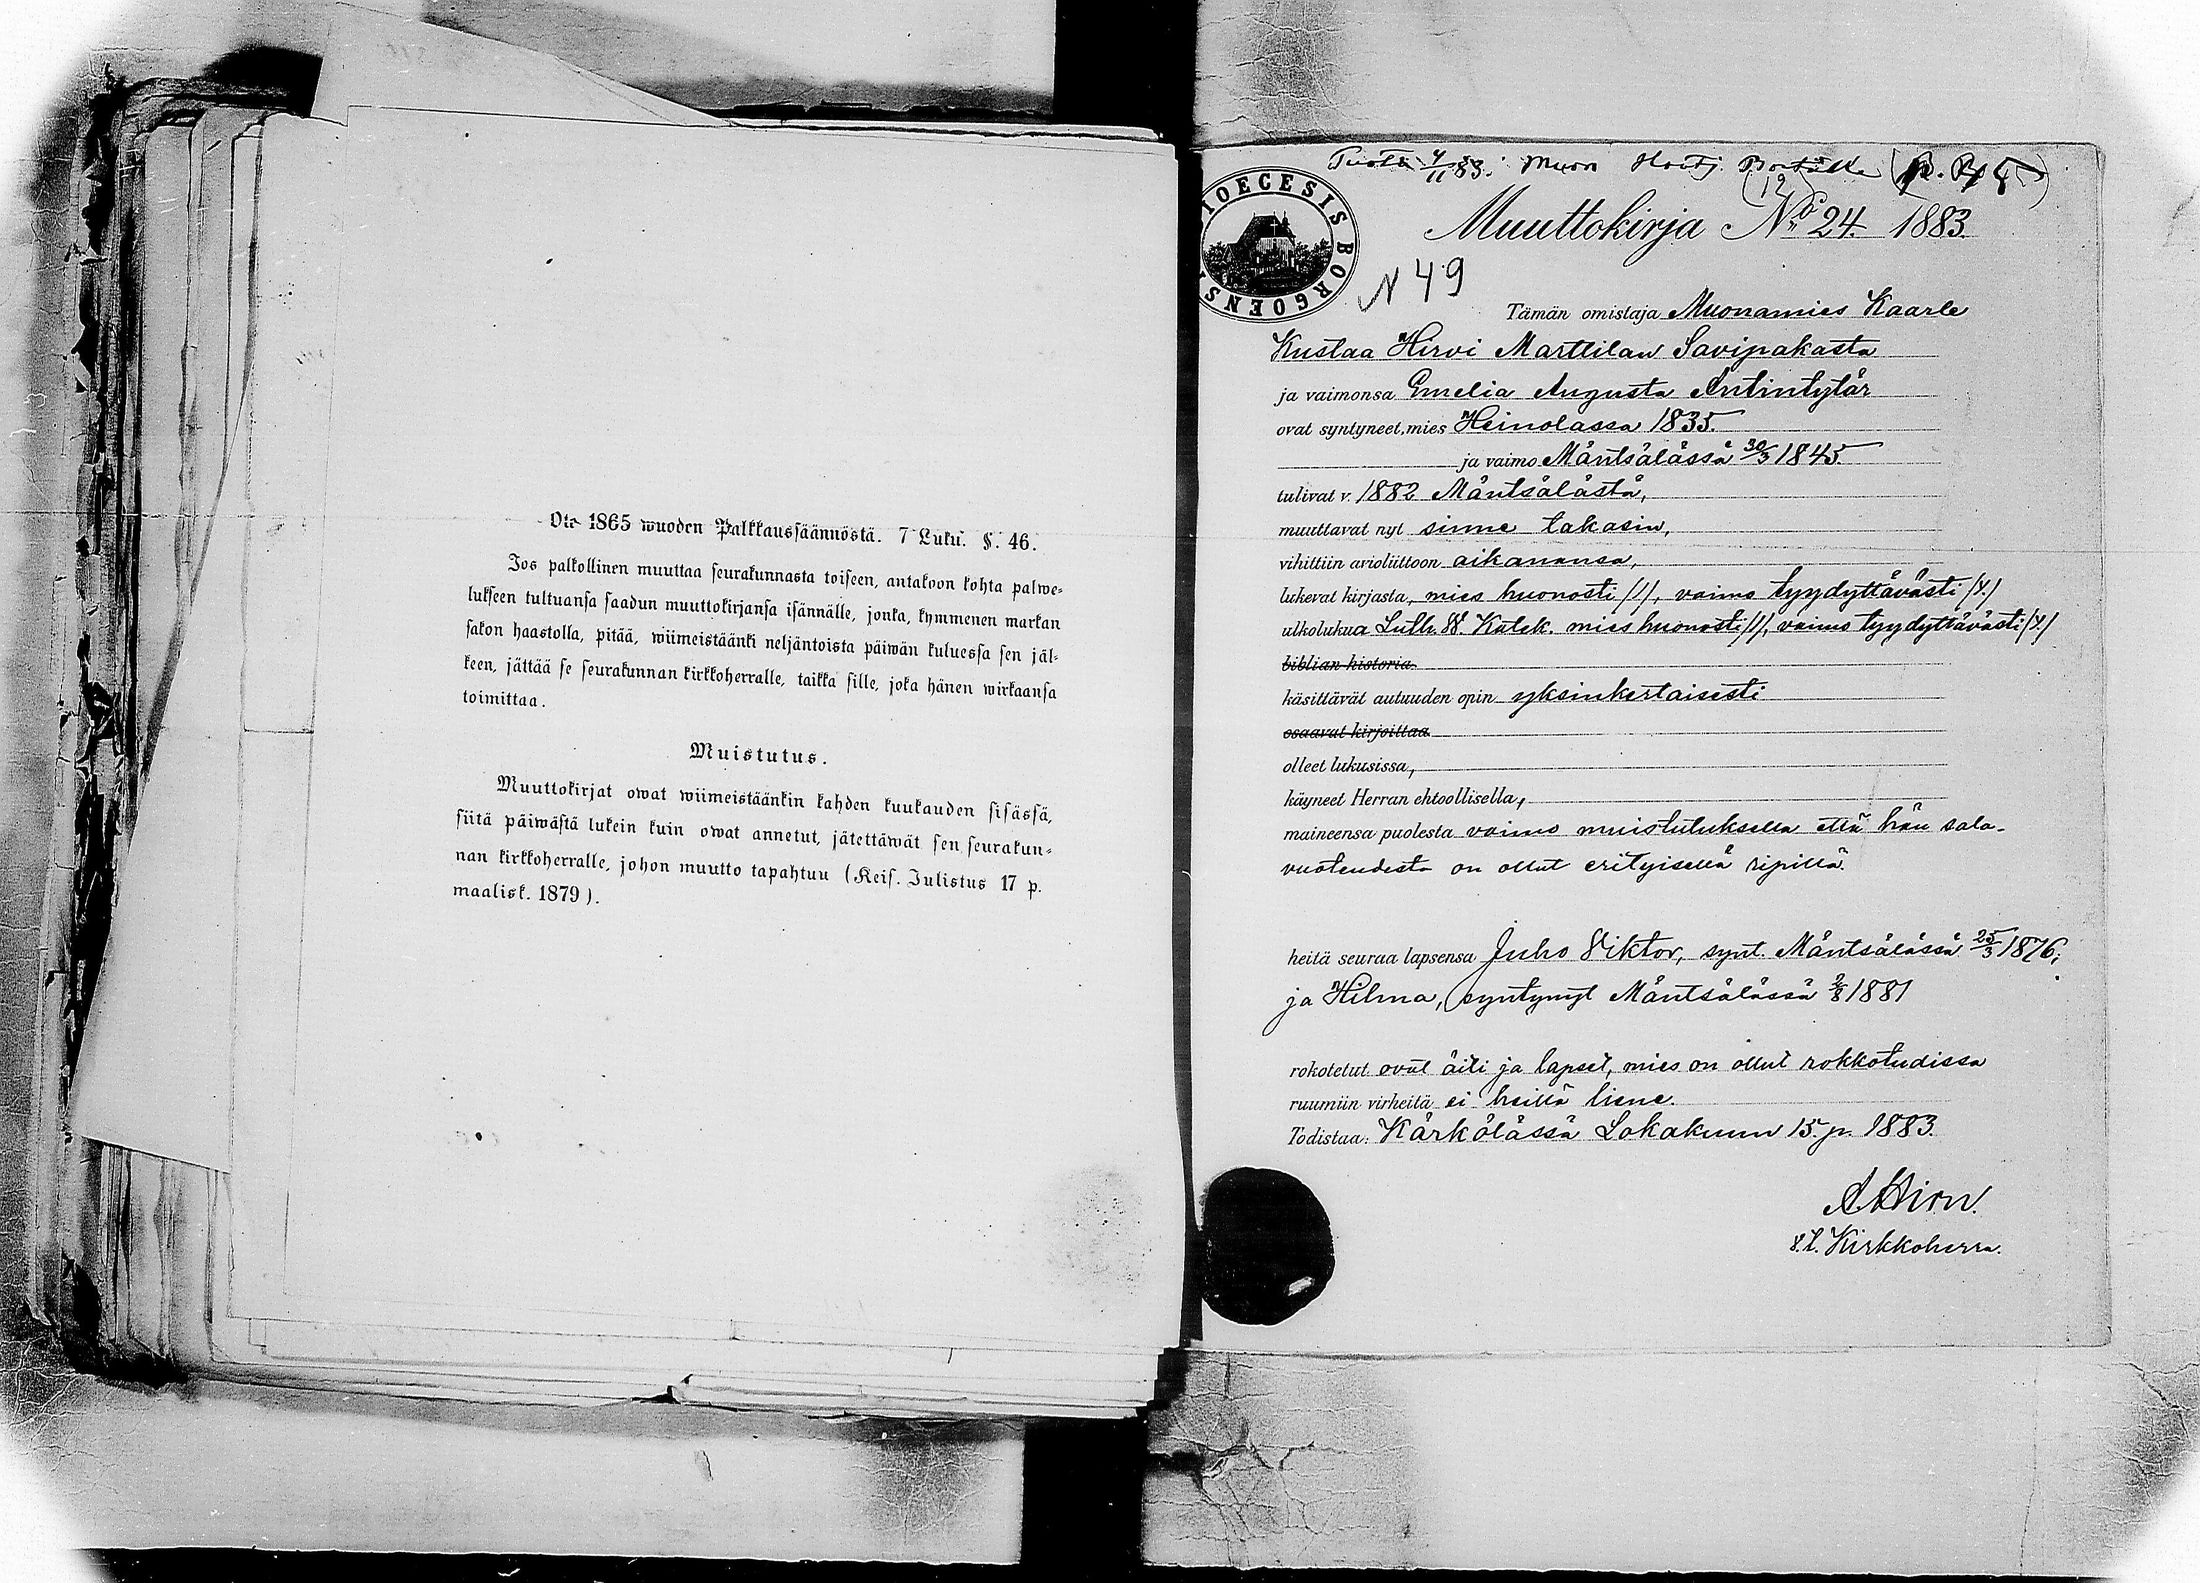 Ote 1865 wuoden Palkkaussäännöstä. 7 Luku. §. 46.
Jos palkollinen muuttaa seurakunnasta toiseen, antakoon kohta palwe-
lukseen tultuansa saadun muuttokirjansa isännälle, jonka, kymmenen markan
sakon haastolla, pitää, wiimeistäänki neljäntoista päiwän kuluessa sen jäl-
keen, jättää se seurakunnan kirkkoherralle, taikka sille, joka hänen wirkaansa
toimittaa.
Muistutus.
Muuttokirjat owat wiimeistäänkin kahden kuukauden sisässä,
siitä päiwästä lukein kuin owat annetut, jätettäwät sen seurakun-
nan kirkkoherralle, johon muutto tapahtuu (Keis. Julistus 17 p.
maalisk. 1879).
4/11 83. Muon
(12)
DIOECESIS BORGOENSIS
Muuttokirja No 24. 1883.
N 49
Tämän omistaja Muonamies Kaarle
Kustaa Hirvi Marttilan Savipakasta
ja vaimonsa Emelia Augusta Antintytär
ovat syntyneet, mies Heinolassa 1835.
ja vaimo Mäntsälässä 30/3 1845.
tulivat v. 1882 Mäntsälästä,
muuttavat nyt sinne takasin,
vihittiin avioliittoon aikanansa,
lukevat kirjasta, mies huonosti /)/, vaimo tyydyttävästi /y./
ulkolukua Luth. W. Katek. mies huonosti /)/, vaimo tyydyttävästi /y./
biblian historia
käsittävät autuuden opin yksinkertaisesti
osaavat kirjoittaa
olleet lukusissa,
käyneet Herran ehtoollisella,
maineensa puolesta vaimo muistutuksella että hän sala-
vuoteudesta on ollut erityisellä ripillä.
heitä seuraa lapsensa Juho Viktor, synt. Mäntsälässä 25/3 1876;
ja Hilma, syntynyt Mäntsälässä 2/8 1881
rokotetut ovat äiti ja lapset, mies on ollut rokkotudissa
ruumiin virheitä ei heillä liene.
Todistaa: Kärkölässä Lokakuun 15. p. 1883.
A Hirn.
V. t. Kirkkoherra.